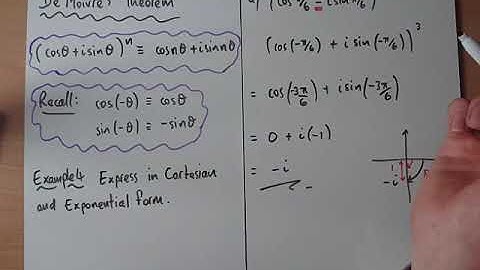 De Moivre's Theorem
(cosθ + isinθ)ⁿ ≡ cosnθ + isinnθ
Recall: cos(-θ) ≡ cosθ
sin(-θ) ≡ -sinθ
Example 4 Express in Cartesian
and Exponential form.
(cos π/6 - isin π/6)
(cos(-π/6) + i sin(-π/6))³
= cos(-3π/6) + i sin(-3π/6)
= 0 + i(-1)
= -i
1
-i